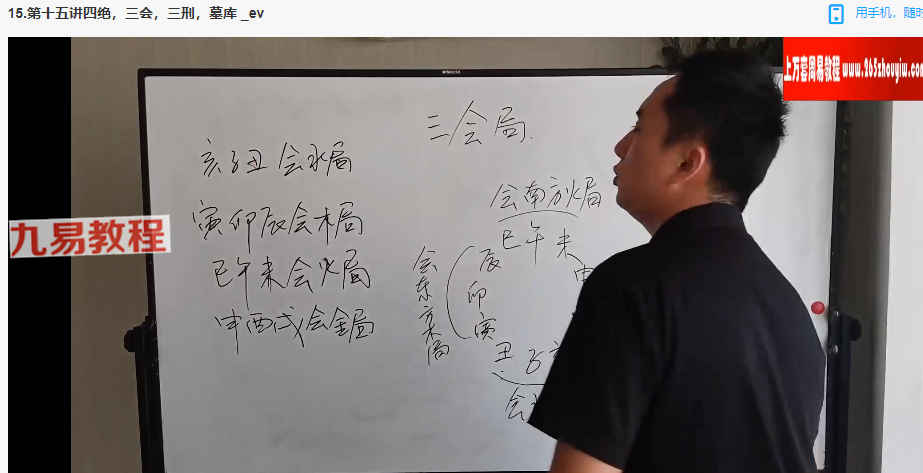 15.第十五讲四绝，三会，三刑，墓库 _ev
用手机，随时
上万套周易教程 www.365zhouyiw.com
九易教程
三会局.
亥子丑 会水局
寅卯辰会木局
巳午未会火局
申酉戌会金局
会南方火局
巳午未
申
辰
卯
寅
会东方木局
丑子亥
会